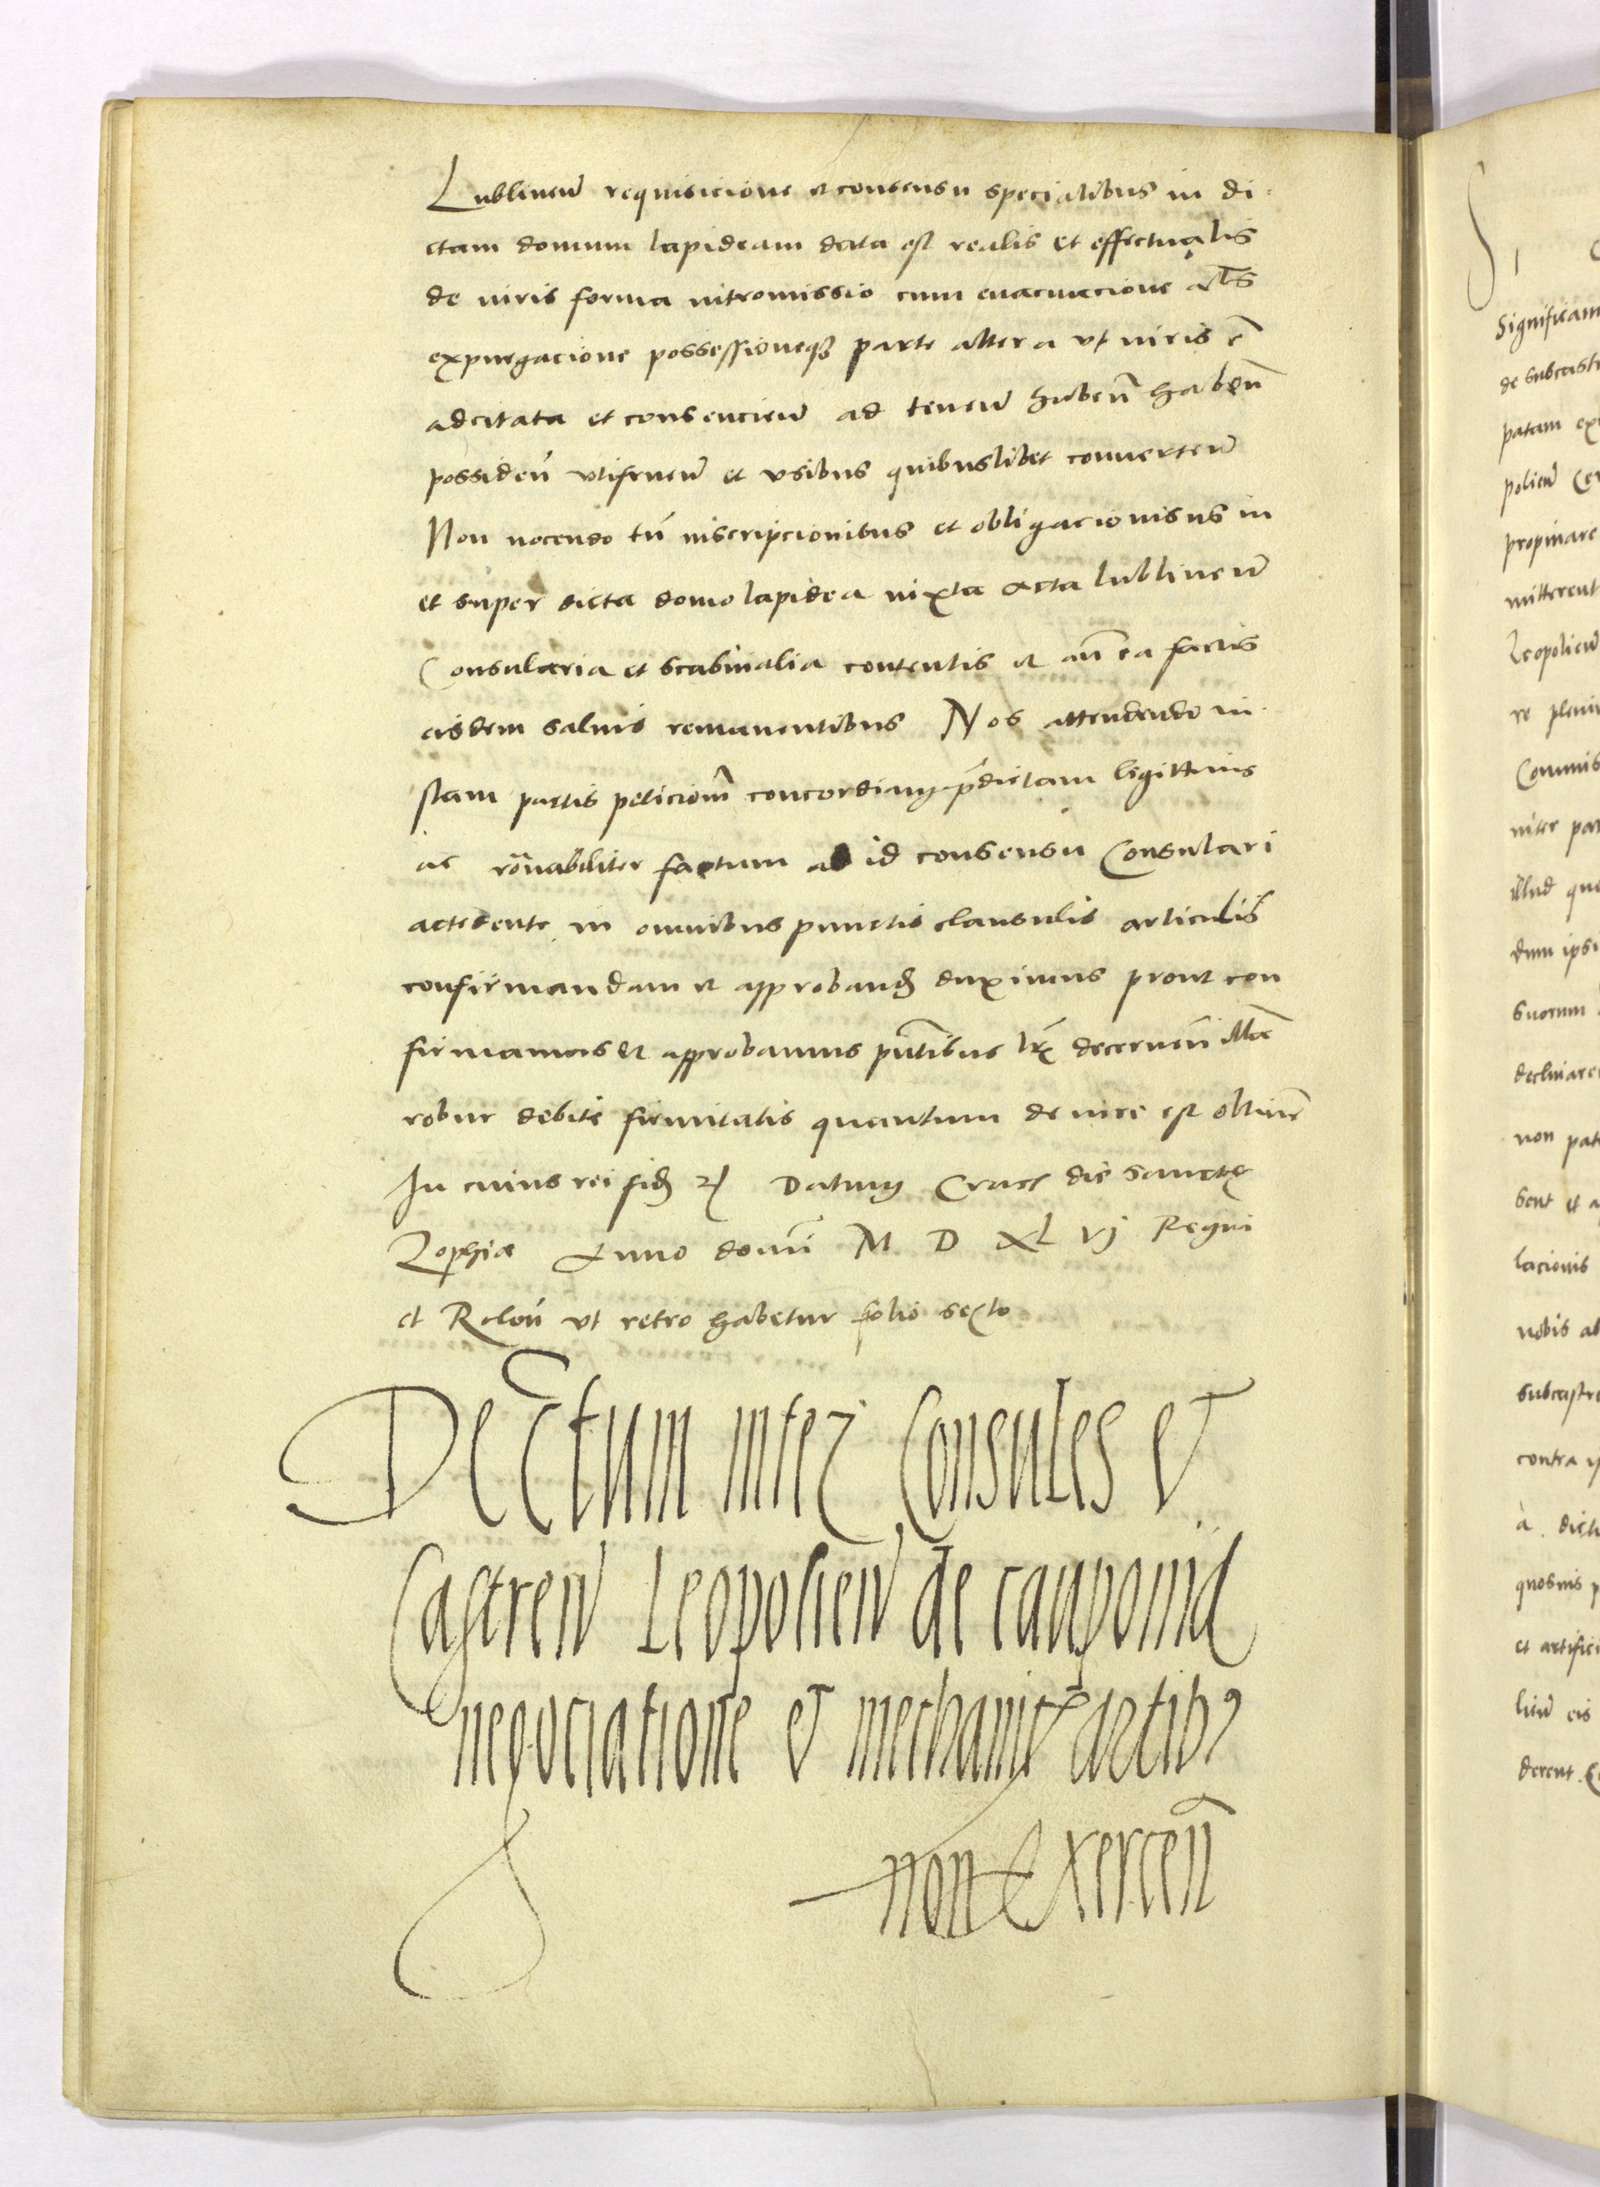 Lublinen̄ requisicione et consensu specialibus in di-
ctam domum lapideam data est realis et effectualis
de iuris forma intromissio cum euacuacione als̄
expurgacione possessioneqꝫ parte altera vt iuris ē
adcitata et consencien̄ ad tenen̄ haben̄
possiden̄ vtifruen̄ et vsibus quibuslibet conuerten̄
Non nocendo tn̄ inscripcionibus et obligacionibus in
et super dicta domo lapidea iuxta acta lublinen̄
Consularia et scabinalia contentis et an̄ ea factis
eisdem saluis remanentibus Nos attendendo in-
stam partis peticionē concordiam p̄dictam ligittimis
ac rōnabiliter factum ad id consensu Consulari
accedente in omnibus punctis clausulis articulis
confirmandam et approband̄ duximus prout con
firmamus et approbamus pn̄tibus lr̄is decernen̄ illā
robur debite firmitatis quantum de iure est obtinere
In cuius rei fidē etc Datum Crac̄ die sanctę
Zophiæ Anno domī M D XL vj Regni
et Relon̄ vt retro habetur folio sexto
Decr̄etum inter Consules et
Castren̄ Leopolien̄ de cauponia
negociatione et mechanicꝭ artibꝰ
non Exercen̄
Significam
de subcastr
patam ex
polien̄ Ce
propinare
mitterent
Leopolien̄
re pleni
Commis
inter par
illud qu
dum ipsi
suorum
declinare
non pat
bent et a
lacionis
nobis ab
subcastr
contra i
à dict
quosuis p
et artifici
lien̄ eis
derent. C